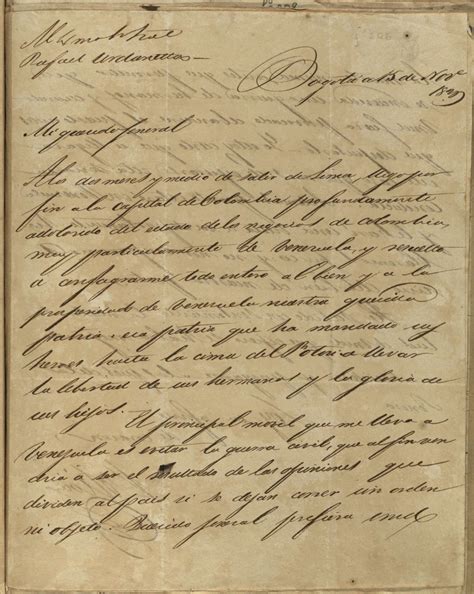 Rafael Urdaneta
Bogotá a 15 de Nove
Mi querido General
A los dos meses y medio de salir de Lima llego por
fin a la capital de Colombia profundamente
adolorido del estado de los negocios de Colombia,
muy particularmente de Venezuela, y resuelto
a consagrarme todo entero al bien y a la
prosperidad de Venezuela nuestra querida
patria, esa patria que ha mandado sus
heroes hasta la cima del Potosi a llevar
la libertad de sus hermanos y la gloria de
sus hijos.
El principal movil que me lleva a
Venezuela es evitar la guerra civil, que al fin ven
dria a ser el resultado de las opiniones que
dividen al pais si se dejan correr sin orden
ni objeto. Querido general prefiera